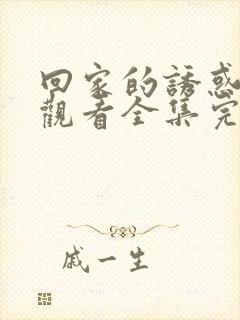 回家的誘惑
觀看全集完
戚一生